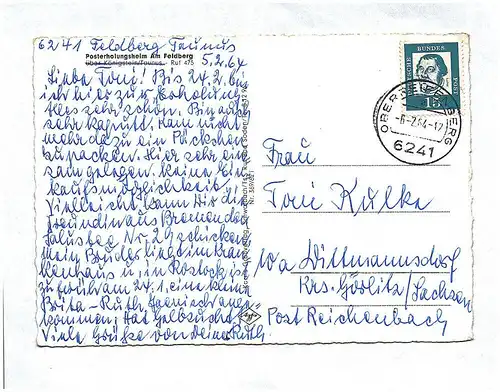 6241 Feldberg Taunus
5.2.64
Posterholungsheim Am Feldberg
über Königstein/Taunus · Ruf 475
Liebe Toni! Bis 24.2. bin
ich hier zur Erholung
Alles sehr schön. Bin auch
sehr kaputt. Kam nicht
mehr dazu ein Päckchen
zu packen. Hier sehr ein-
sam gelegen. keine Ein-
kaufsmöglichkeit
Vielleicht kann Dir die
Freundin aus Bremen den
schicken
Mein Bruder liegt im Kran
kenhaus in Rostock ist
zu früh am 24.1. eine kleine
Brita-Ruth ange
kommen. Hat Gelbsucht.
Viele Grüße von Deiner Ruth
DEUTSCHE BUNDESPOST
15
-6.-2.64-17
6241
Frau
Toni Kulke
10a Dittmannsdorf
Krs. Görlitz/Sachsen
Post Reichenbach